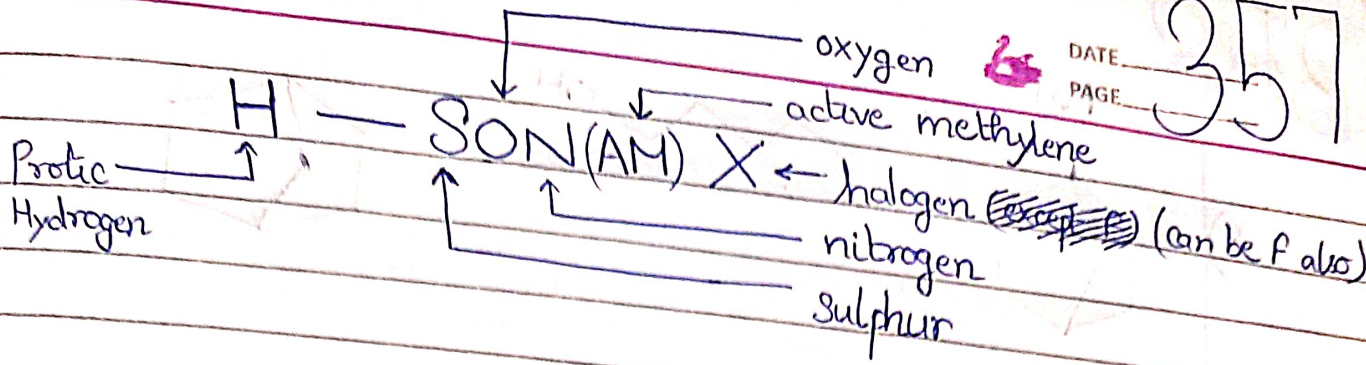 DATE 357
PAGE
oxygen
active methylene
H — SON(AM) X ← halogen (can be F also)
Protic
Hydrogen
nitrogen
sulphur